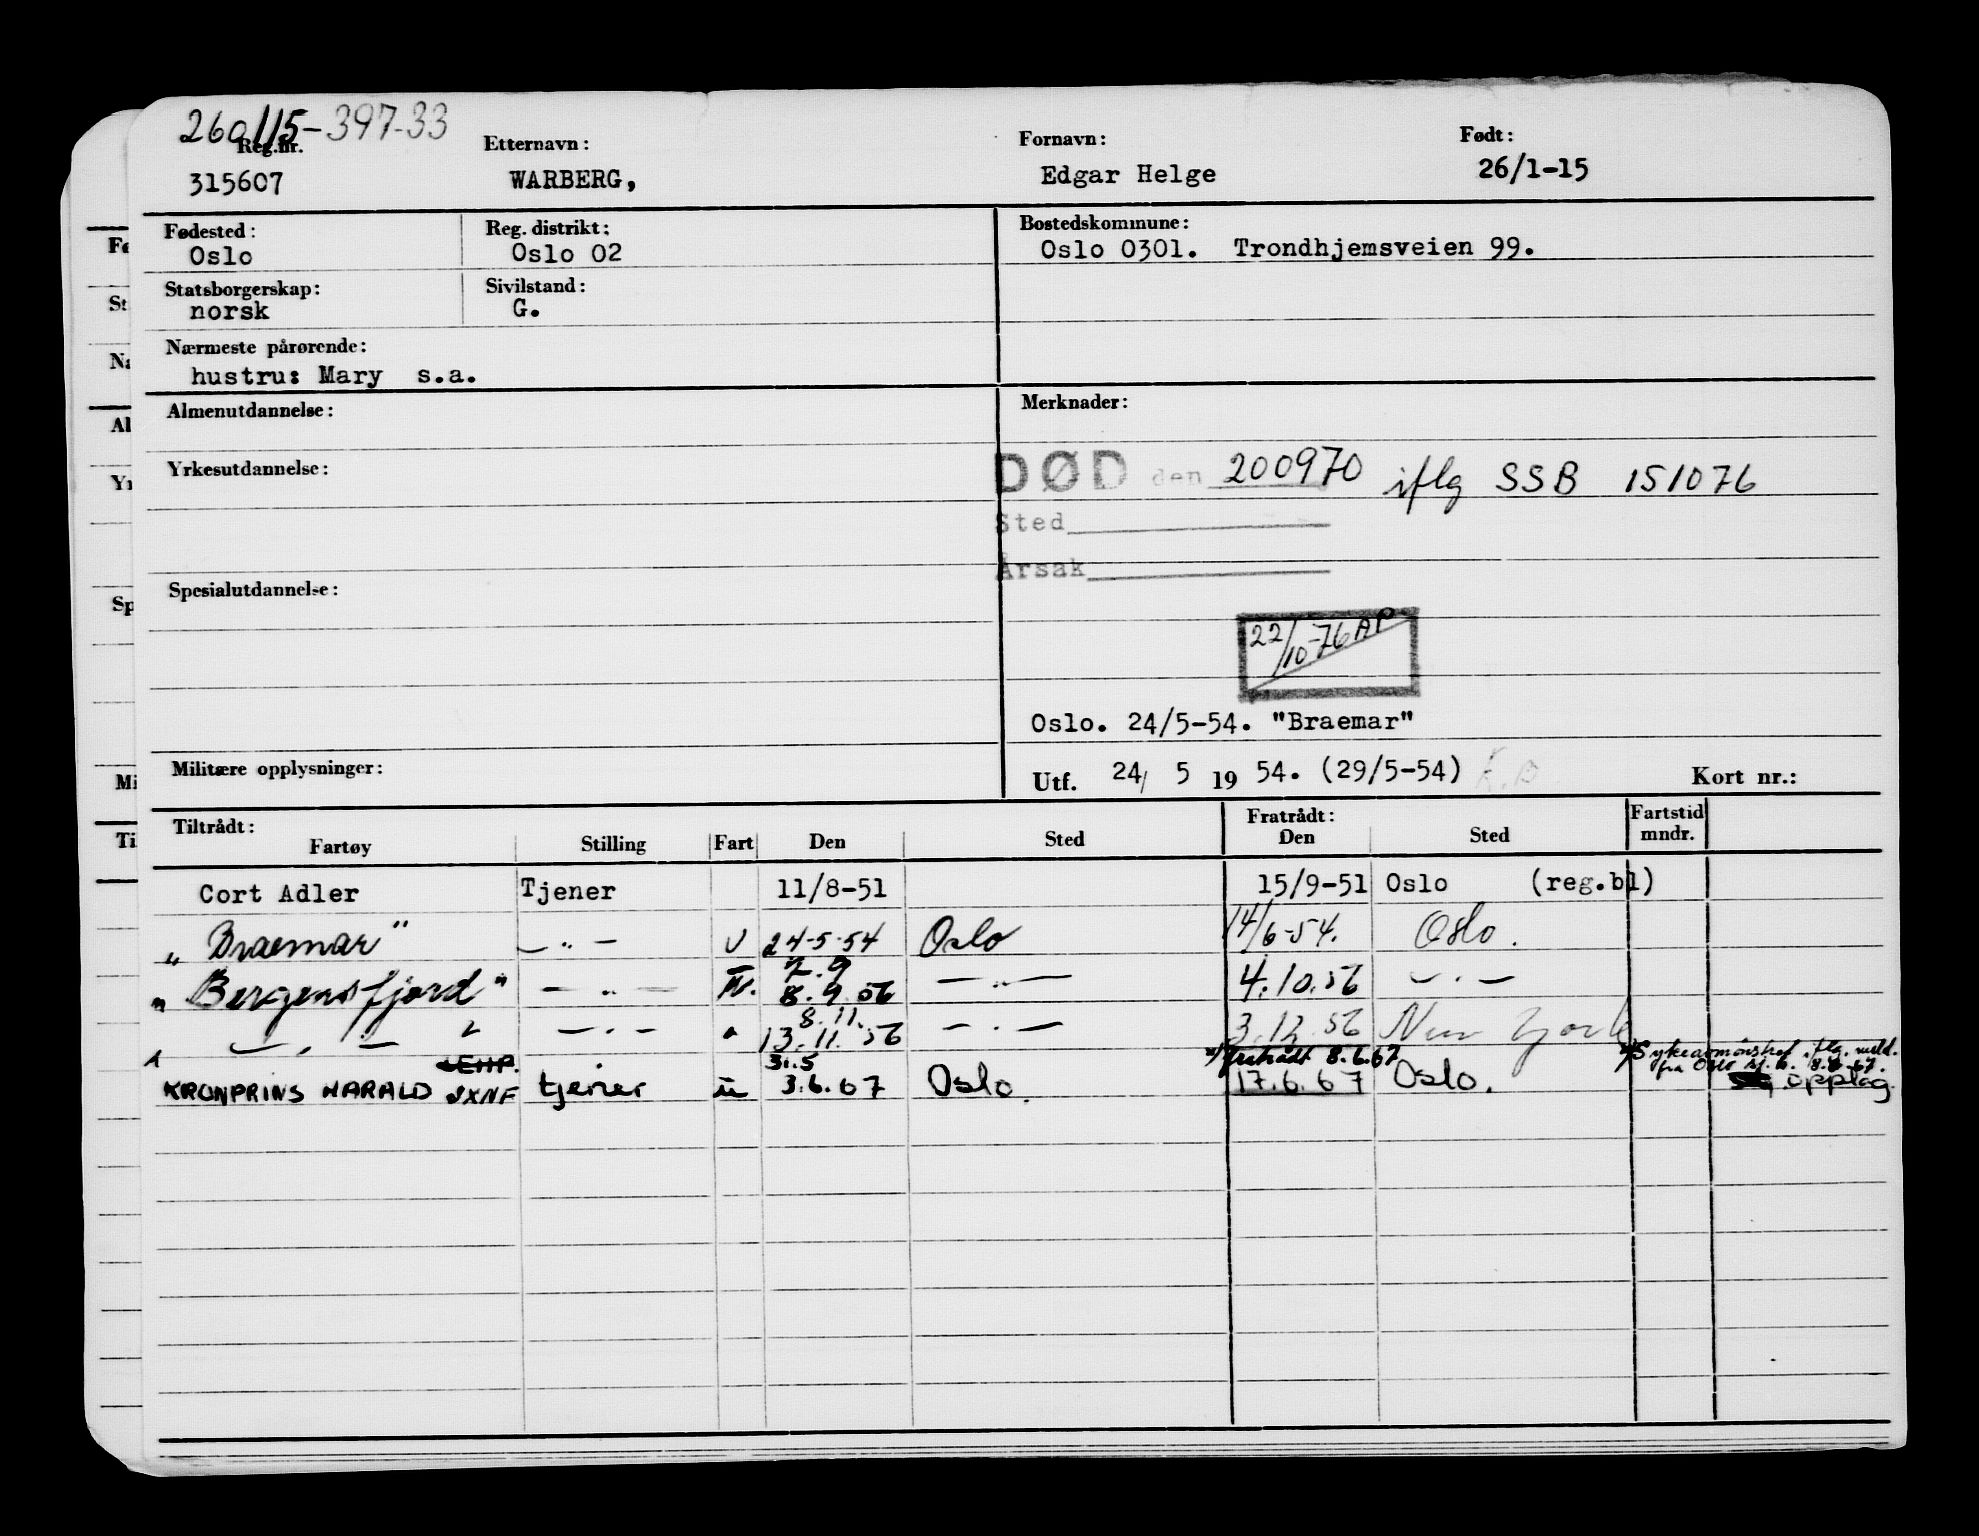 260115-397-33
Reg.nr. Etternavn: Fornavn: Født:
315607 WARBERG, Edgar Helge 26/1-15
Fødested: Reg. distrikt: Bostedskommune:
Oslo Oslo 02 Oslo 0301. Trondhjemsveien 99.
Statsborgerskap: Sivilstand:
norsk G.
Nærmeste pårørende:
hustru: Mary s.a.
Almenutdannelse: Merknader:
Yrkesutdannelse:
DØD den 200970 iflg SSB 151076
Sted
Årsak
Spesialutdannelse:
22/10-76 AP
Oslo. 24/5-54. "Braemar"
Militære opplysninger: Utf. 24/ 5 19 54. (29/5-54) Kort nr.:
Tiltrådt: Fratrådt: Fartstid
Fartøy Stilling Fart Den Sted Den Sted mndr.
Cort Adler Tjener 11/8-51 15/9-51 Oslo (reg.bl)
„ Braemar " — „ — U 24-5-54 Oslo 14/6-54. Oslo.
2.9
„ Bergensfjord " — „ — 8.9.56 — „ — 4.10.56 — „ —
8.11.
— „ — — „ — " 13.11.56 — „ — 3.12.56 New York
31.5 x/ fratrådt 8.6.67 x/ Sykeavmønstret iflg. meld.
fra Oslo sj.k. 8.6.67.
KRONPRINS HARALD JXNF tjener 3.6.67 Oslo. 17.6.67 Oslo. opplag.
Fø
St
Næ
Al
Yr
Sp
Mi
Ti